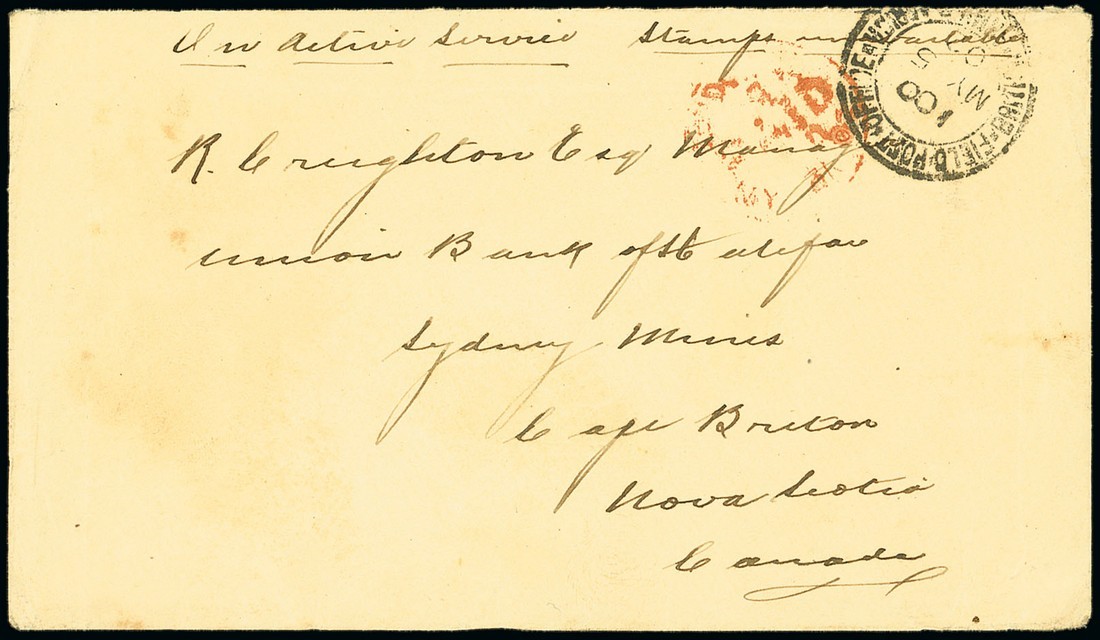 On Active Service Stamps unavailable
R. Creighton Esq Manag
Union Bank of Halifax
Sydney Mines
Cape Breton
Nova Scotia
Canada
FIELD POST OFFICE
MY 5
00
PAID
MY